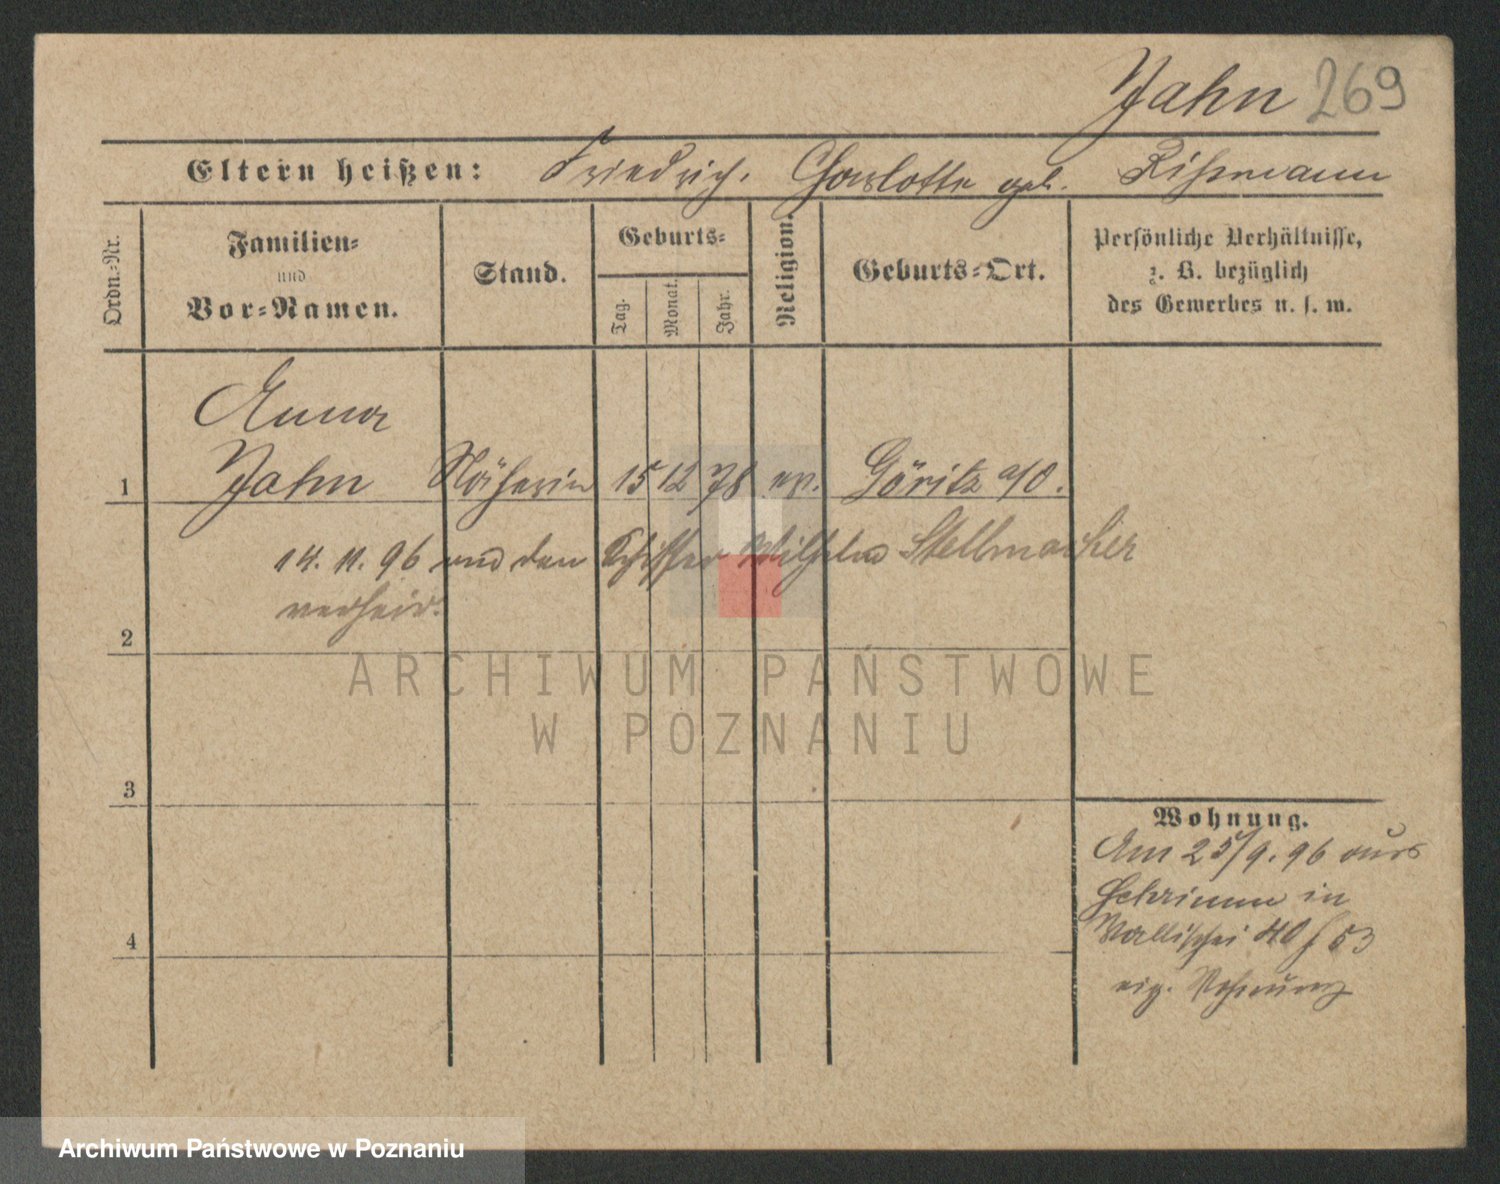 Jahn 269
Eltern heißen: Friedrich. Charlotte geb. Rissmann
Ordn.-Nr.
Familien-
und
Vor-Namen.
Stand.
Geburts-
Tag.
Monat.
Jahr.
Religion.
Geburts-Ort.
Persönliche Verhältnisse,
z. B. bezüglich
des Gewerbes u. s. w.
Anna
1 Jahn Näherin 15 12 78 ev. Göritz a/O.
14. 11. 96 den Schiffer Wilhelm Stellmacher
verheir.
2
ARCHIWUM PAŃSTWOWE
W POZNANIU
3
Wohnung.
Am 25/9. 96 aus
in
4
Wallischei 53
eig. Wohnung
Archiwum Państwowe w Poznaniu